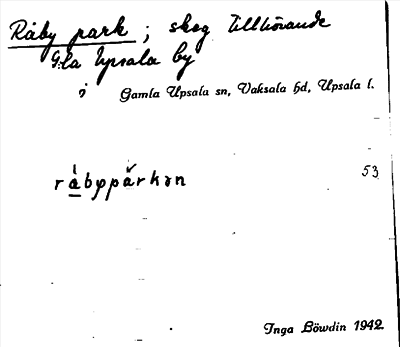 Råby park; skog tillhörande
G:la Upsala by
i Gamla Upsala sn, Vaksala hd, Upsala l.
råbypárkən 53
Inga Böwdin 1942.